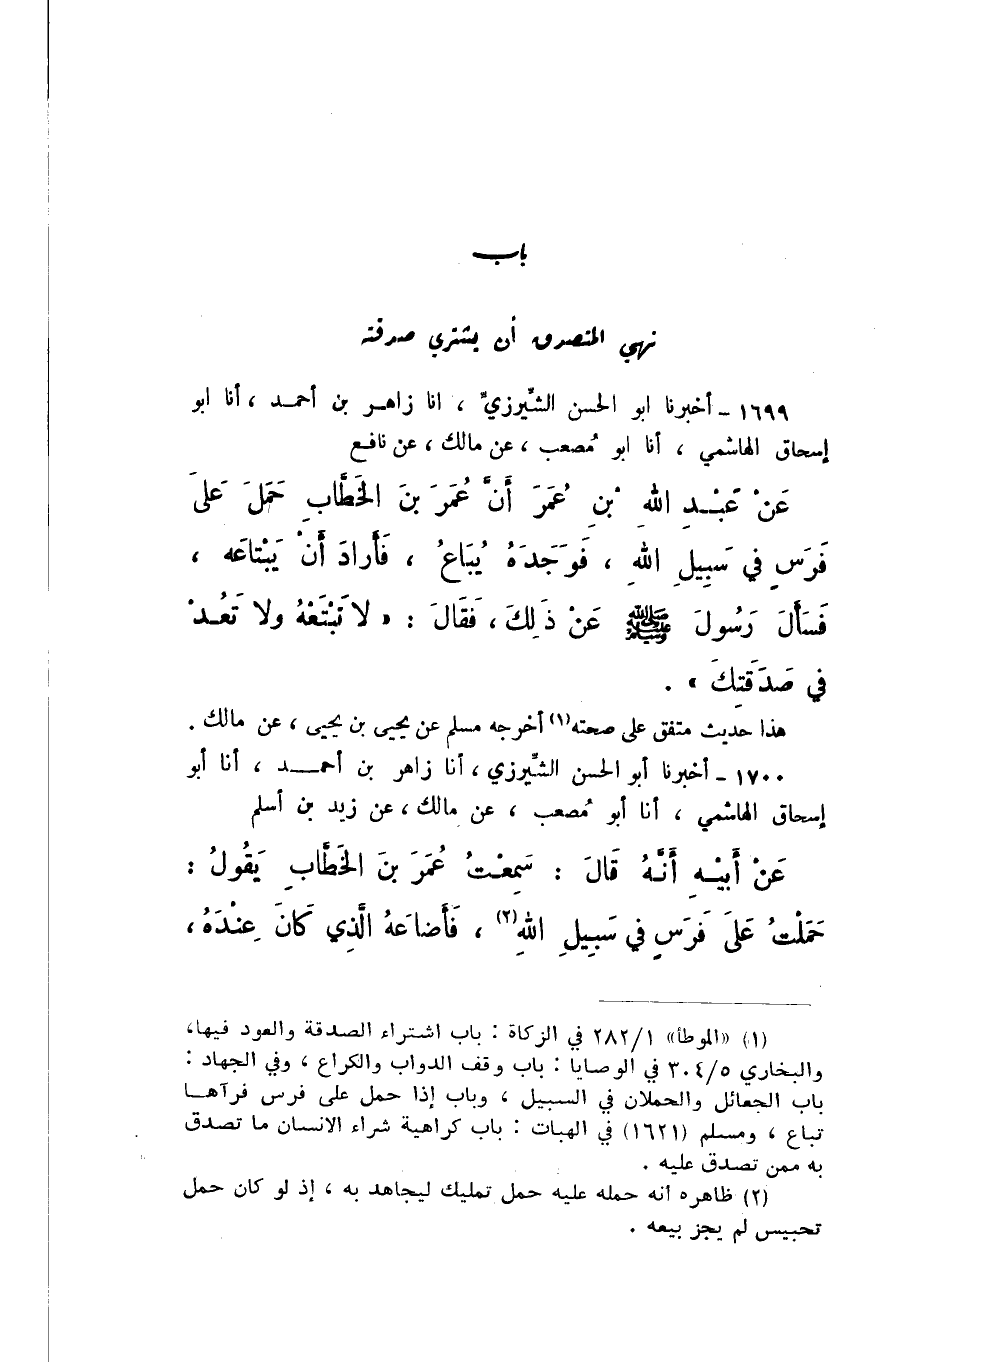 باب
نهي المتصدق أن يشتري صدقته
١٦٩٩ ـ أخبرنا ابو الحسن الشِّيرزيُّ ، انا زاهر بن أحمد ، أنا ابو
إسحاق الهاشمي ، أنا ابو مُصعب ، عن مالك ، عن نافع
عَنْ عَبْدِ اللهِ بْنِ عُمَرَ أَنَّ عُمَرَ بنَ الخَطَّابِ حَمَلَ عَلى
فَرَسٍ في سَبِيلِ اللهِ ، فَوَجَدَهُ يُبَاعُ ، فَأَرادَ أَنْ يَبْتاعَه ،
فَسَأَلَ رَسُولَ ﷺ عَنْ ذَلِكَ ، فَقَالَ : « لا تَبْتَعْهُ ولا تَعُدْ
في صَدَقَتِكَ » .
هذا حديث متفق على صحته(١) أخرجه مسلم عن يحيى بن يحيى ، عن مالك .
١٧٠٠ ـ أخبرنا أبو الحسن الشِّيرزي ، أنا زاهر بن أحمد ، أنا أبو
إسحاق الهاشمي ، أنا أبو مُصعب ، عن مالك ، عن زيد بن أسلم
عَنْ أَبِيْهِ أَنَّهُ قَالَ : سَمِعْتُ عُمَرَ بنَ الخَطَّابِ يَقُولُ :
حَمَلْتُ عَلَى فَرَسٍ في سَبِيلِ اللهِ(٢) ، فَأَضاعَهُ الَّذِي كَانَ عِنْدَهُ ،
(١) «الموطأ» ٢٨٢/١ في الزكاة : باب اشتراء الصدقة والعود فيها،
والبخاري ٣٠٤/٥ في الوصايا : باب وقف الدواب والكراع ، وفي الجهاد :
باب الجعائل والحملان في السبيل ، وباب إذا حمل على فرس فرآها
تباع ، ومسلم (١٦٢١) في الهبات : باب كراهية شراء الانسان ما تصدق
به ممن تصدق عليه .
(٢) ظاهره أنه حمله عليه حمل تمليك ليجاهد به ، إذ لو كان حمل
تحبيس لم يجز بيعه .